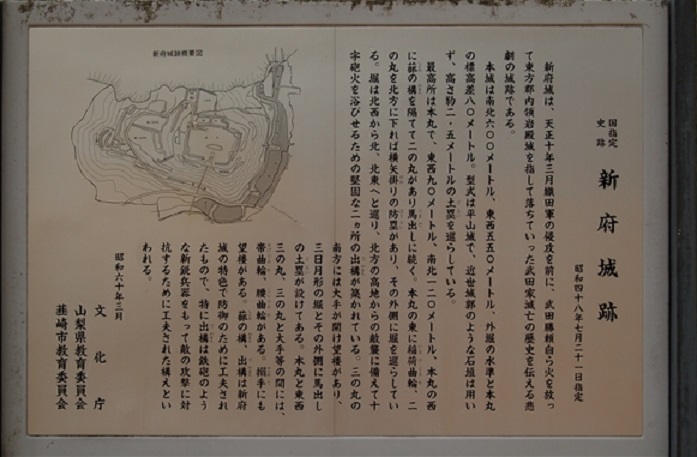 国指定
史跡
新府城跡
昭和四十八年七月二十一日指定
新府城は、天正十年三月織田軍の侵攻を前に、武田勝頼自ら火を放っ
て東方郡内領岩殿城を指して落ちていった武田家滅亡の歴史を伝える悲
劇の城跡である。
本城は南北六〇〇メートル、東西五五〇メートル、外堀の水準と本丸
の標高差八〇メートル。型式は平山城で、近世城郭のような石垣は用い
ず、高さ約二・五メートルの土塁を巡らしている。
最高所は本丸で、東西九〇メートル、南北一二〇メートル、本丸の西
に蔀の構を隔てて二の丸があり馬出しに続く。本丸の東に稲荷曲輪、二
の丸を北方に下れば横矢掛りの防塁があり、その外側に堀を巡らしてい
る。堀は北西から北、北東へと巡り、北方の高地からの敵襲に備えて十
字砲火を浴びせるための堅固な二ヵ所の出構が築かれている。三の丸の
南方には大手が開け望楼があり、
三日月形の堀とその外側に馬出し
の土塁が設けてある。本丸と東西
三の丸、三の丸と大手等の間には、
帯曲輪、腰曲輪がある。搦手にも
望楼がある。蔀の構、出構は新府
城の特色で防御のために工夫され
たもので、特に出構は鉄砲のよう
な新鋭兵器をもって敵の攻撃に対
抗するために工夫された構えとい
われる。
昭和六十年三月
文化庁
山梨県教育委員会
韮崎市教育委員会
新府城跡概要図